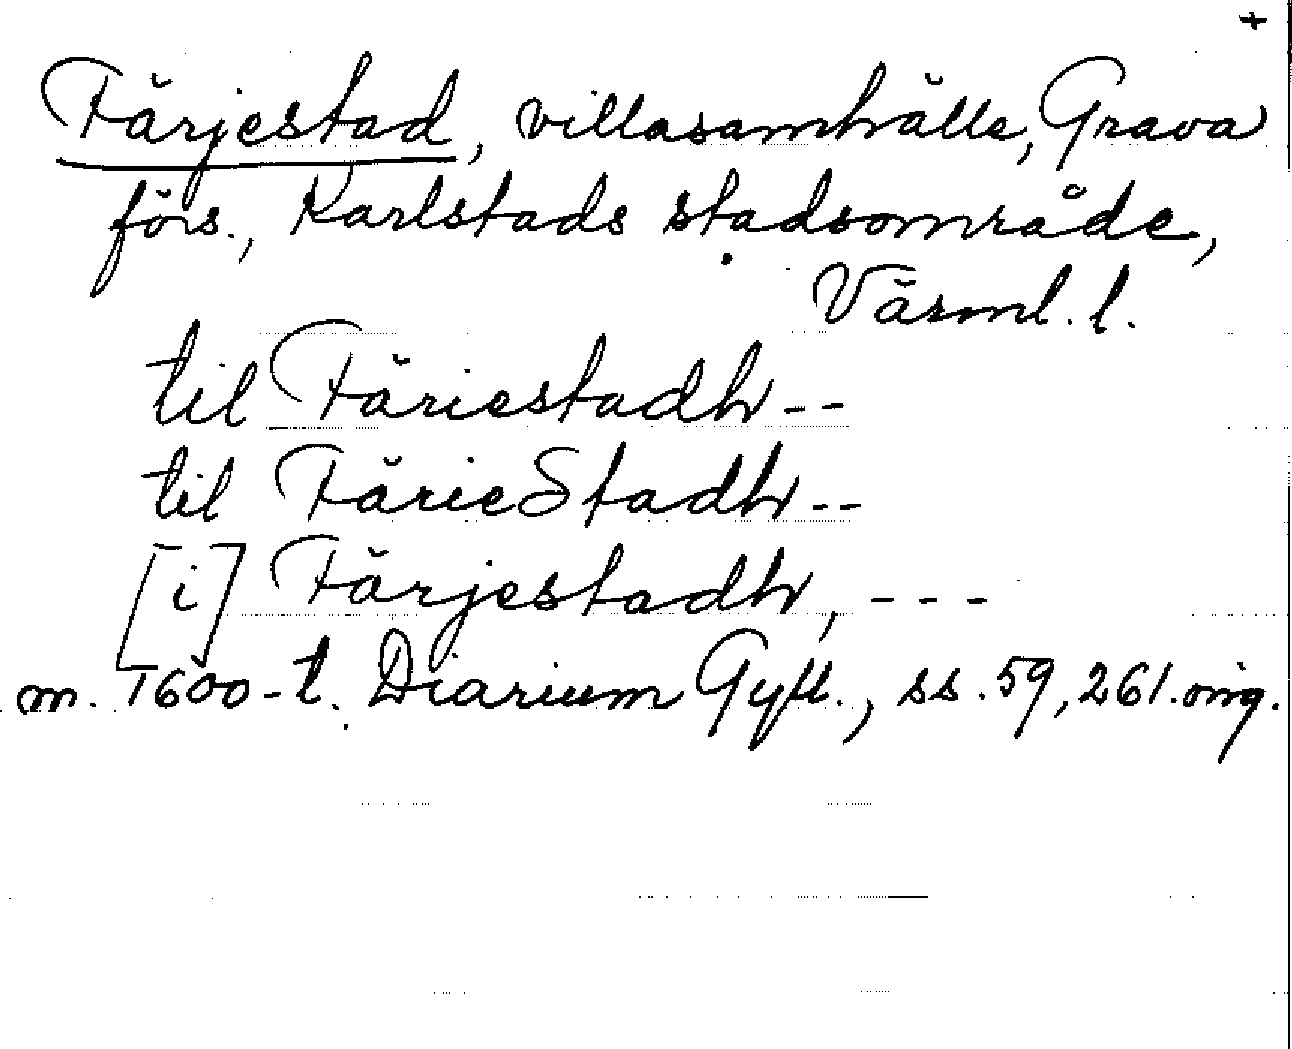 +
Färjestad, villasamhälle, Grava
förs., Karlstads stadsområde,
Värml. l.
til Färiestadh --
til FärieStadh --
[i] Färjestadh, ---
m. 1600-t. Diarium Gyll., ss. 59, 261. orig.